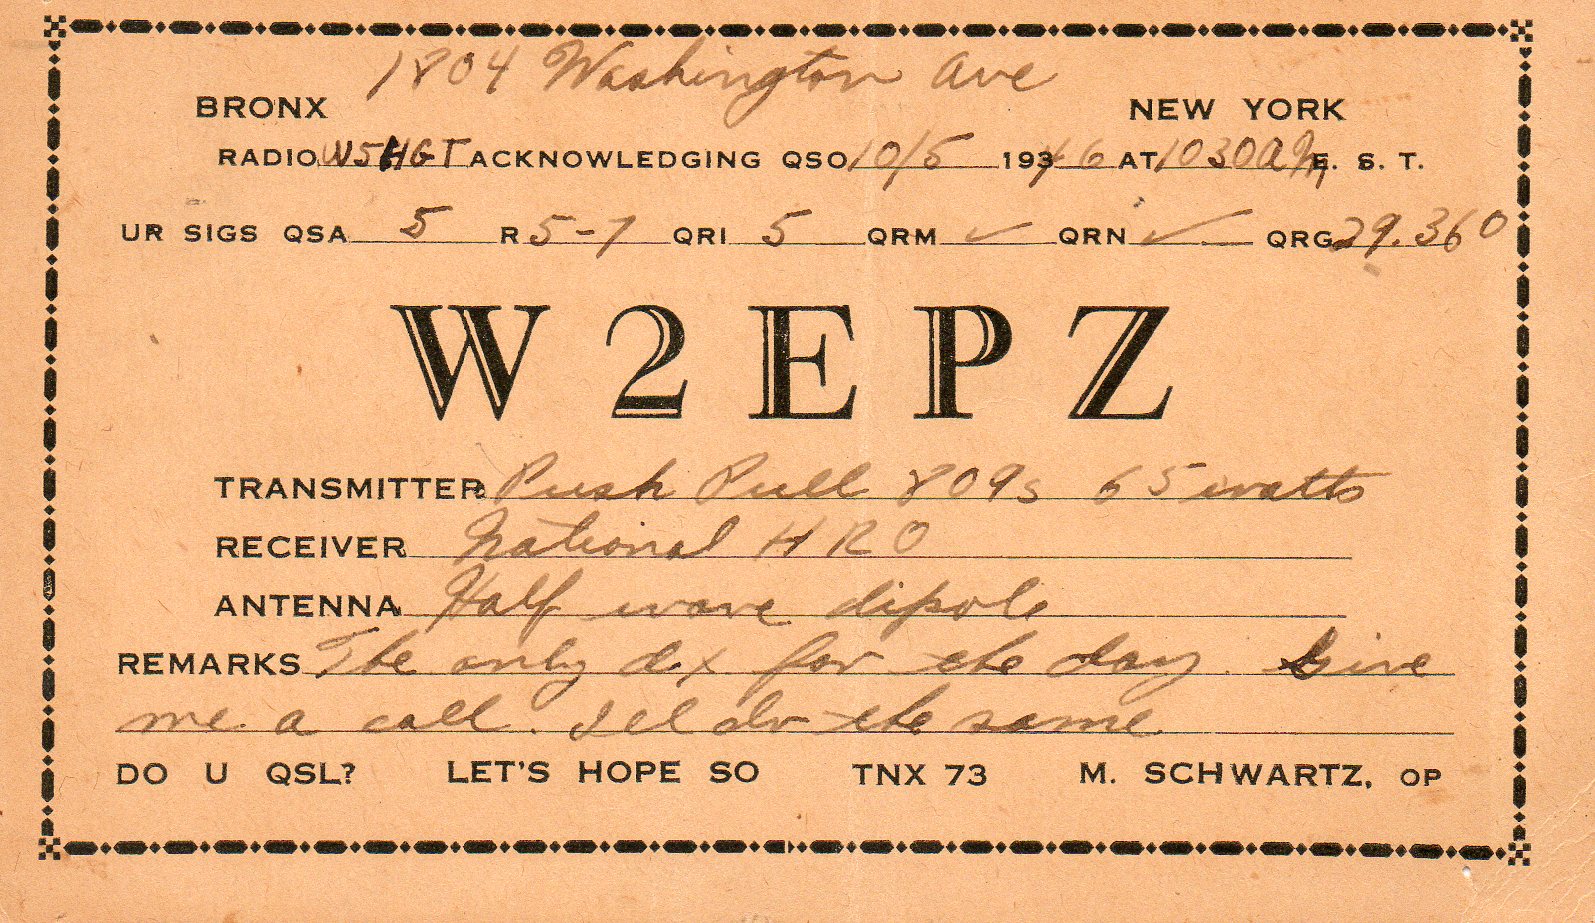 1804 Washington Ave
BRONX NEW YORK
RADIO W5HGT ACKNOWLEDGING QSO 10/5 1946 AT 1030AM E. S. T.
UR SIGS QSA 5 R 5-7 QRI 5 QRM ✓ QRN ✓ QRG 29.360
W2EPZ
TRANSMITTER Push Pull 809s 65 watts
RECEIVER National HRO
ANTENNA Half wave dipole
REMARKS The only dx for the day. Give
me a call. I'll do the same
DO U QSL? LET'S HOPE SO TNX 73 M. SCHWARTZ, OP